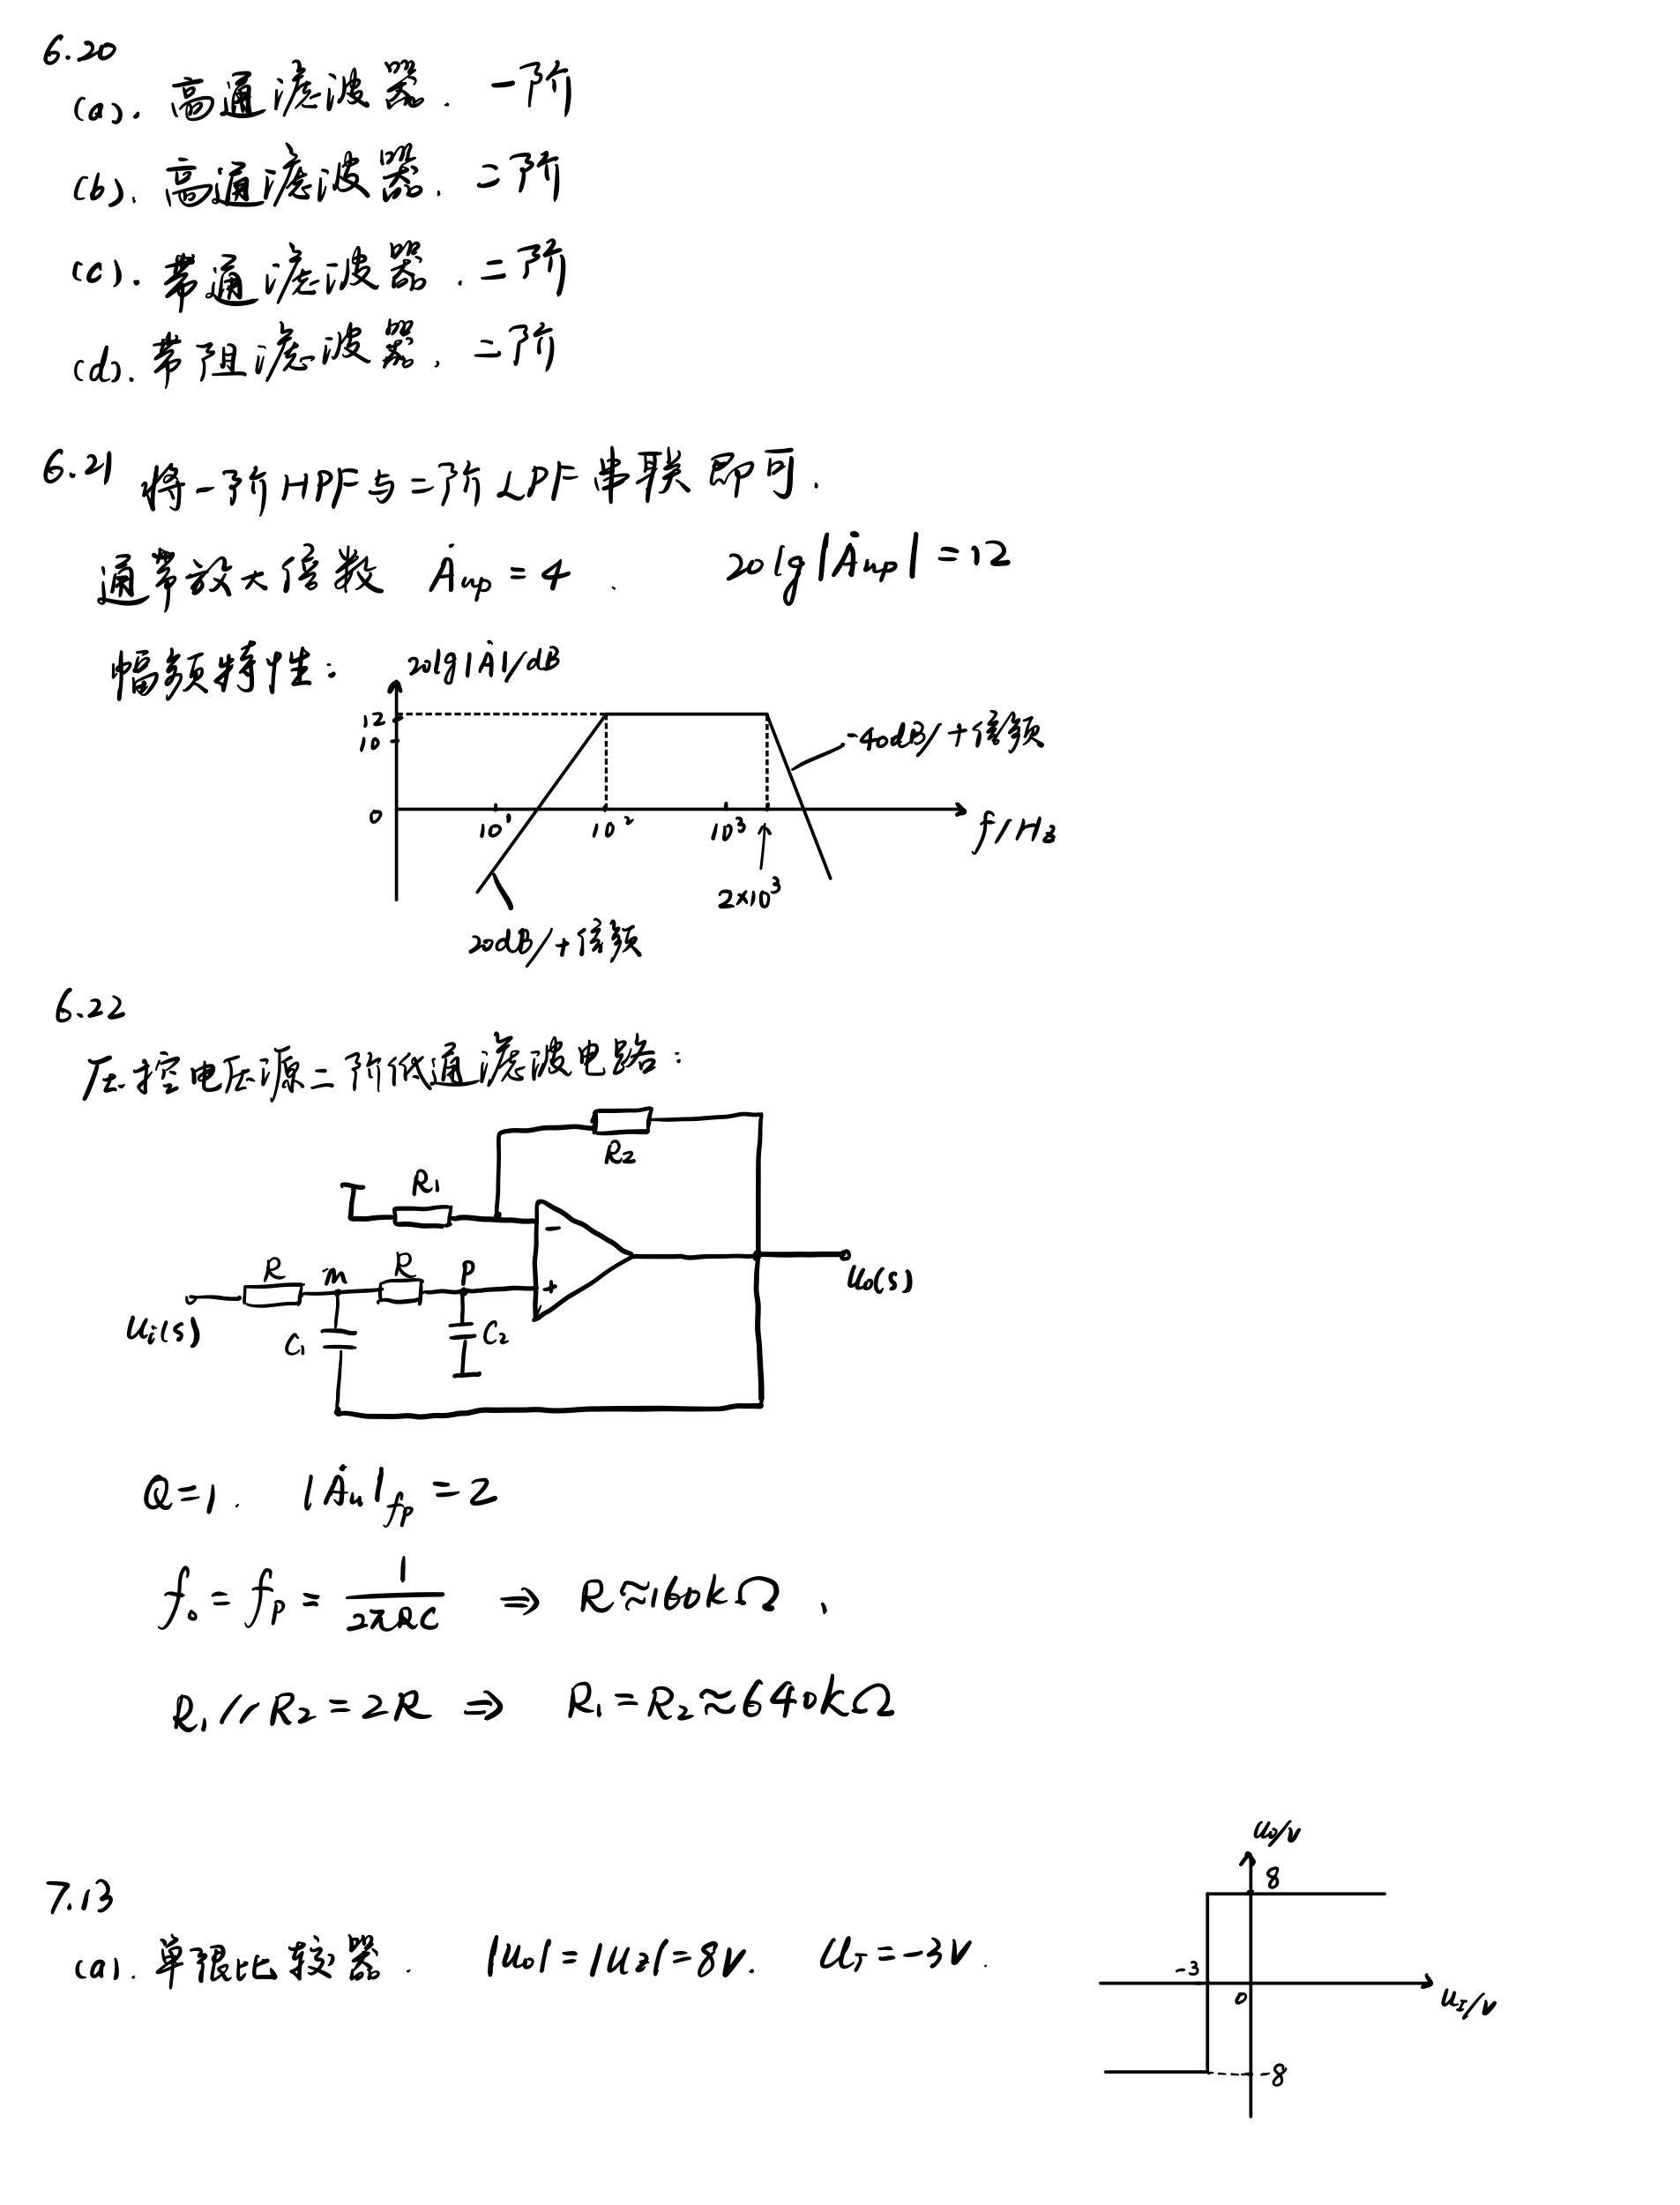 6.20
(a). 高通滤波器. 一阶
(b). 高通滤波器. 二阶
(c). 带通滤波器. 二阶
(d). 带阻滤波器. 二阶
6.21 将一阶HPF与二阶LPF串联即可.
通带放大倍数 Ȧup = 4. 20lg|Ȧup| = 12
幅频特性: 20lg|Ȧ|/dB
12
10
-40dB/十倍频
0
10¹ 10² 10³ f/Hz
2×10³
20dB/十倍频
6.22
压控电压源二阶低通滤波电路:
R2
R1
-
R m R P
+
Uo(s)
Ui(s)
C1 C2
Q=1. |Ȧu|fp = 2
f0 = fp = 1/2πRC ⇒ R≈160kΩ.
R1//R2 = 2R ⇒ R1=R2≈640kΩ
7.13
(a). 单限比较器. |uo|=|uz|=8V. UT=-3V.
uo/V
8
-3
0
uI/V
-8